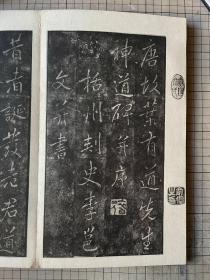 唐故葉有道先生
神道碑并序
括州刺史李邕
文并書
昔者誕發志君道